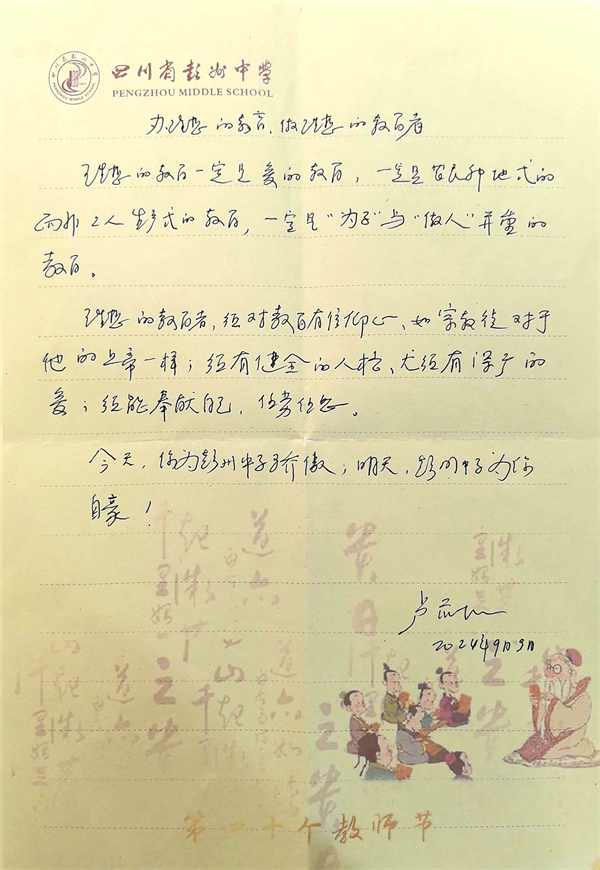 四川省彭州中学
PENGZHOU MIDDLE SCHOOL
办理想的教育、做理想的教育者
理想的教育一定是爱的教育，一定是农民种地式的
而非工人生产式的教育，一定是“为学”与“做人”并重的
教育。
理想的教育者，须对教育有信仰心，如宗教徒对于
他的上帝一样；须有健全的人格、尤须有深广的
爱；须能奉献自己，任劳任怨。
今天，你为彭州中学骄傲；明天，彭州中学为你
自豪！
2024年9月9日
第四十个教师节